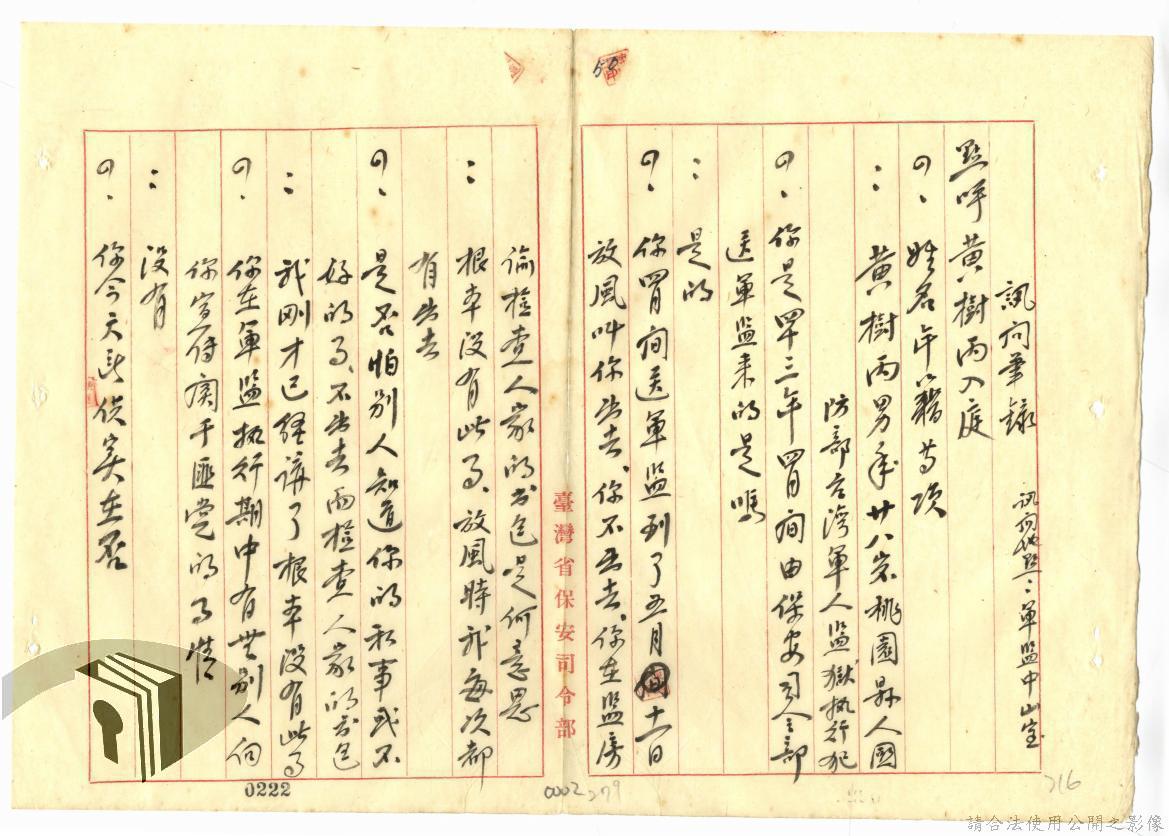 訊問筆錄　訊問地點：軍監中山室
點呼黃樹丙入庭
問、姓名年籍等項
：黃樹丙男年廿八岁桃園縣人國
防部台灣軍人監獄执行犯
問、你是四十三年四月間由保安司令部
送軍监来的是嗎
：是的
問、你四月間送軍监到了五月十一日
放風叫你出去、你不出去、你在监房
偷檢查人家的书包是何意思
：根本沒有此事、放風時我每次都
有出去
問、是否怕別人知道你的私事或不
好的事、不出去而检查人家的书包
：我刚才已经讲了根本沒有此事
問、你在軍监执行期中有無别人向
你宣傳関于匪党的事情
：沒有
問、你今天所供实在否
臺灣省保安司令部
50
0222
0002
279
216
請合法使用公開之影像